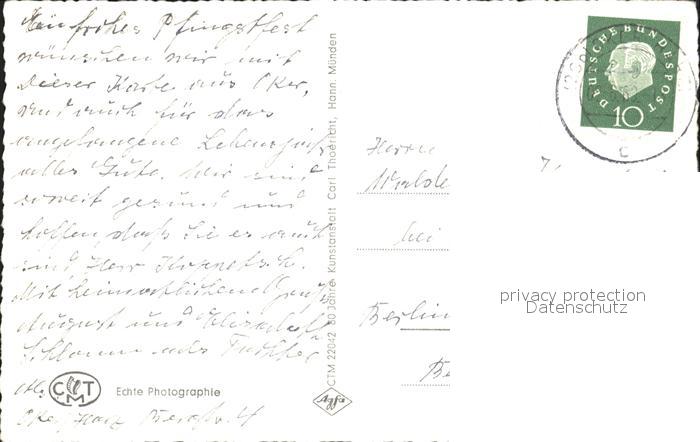 Ein frohes Pfingstfest
wünschen wir mit
dieser Karte aus Oker,
und auch für das
angefangene Lebensjahr
alles Gute. Wir sind
soweit gesund und
hoffen, daß Sie es auch
sind, Herr
Mit heimatlichem Gruß
August und Elisabeth
Oker/Harz Bergstr. 4
CTM
Echte Photographie
CTM 22042 60 Jahre Kunstanstalt Carl Thoericht, Hann. Münden
Agfa
DEUTSCHE BUNDESPOST
10
c
Herrn
Walde
bei
Berlin
Be
privacy protection
Datenschutz